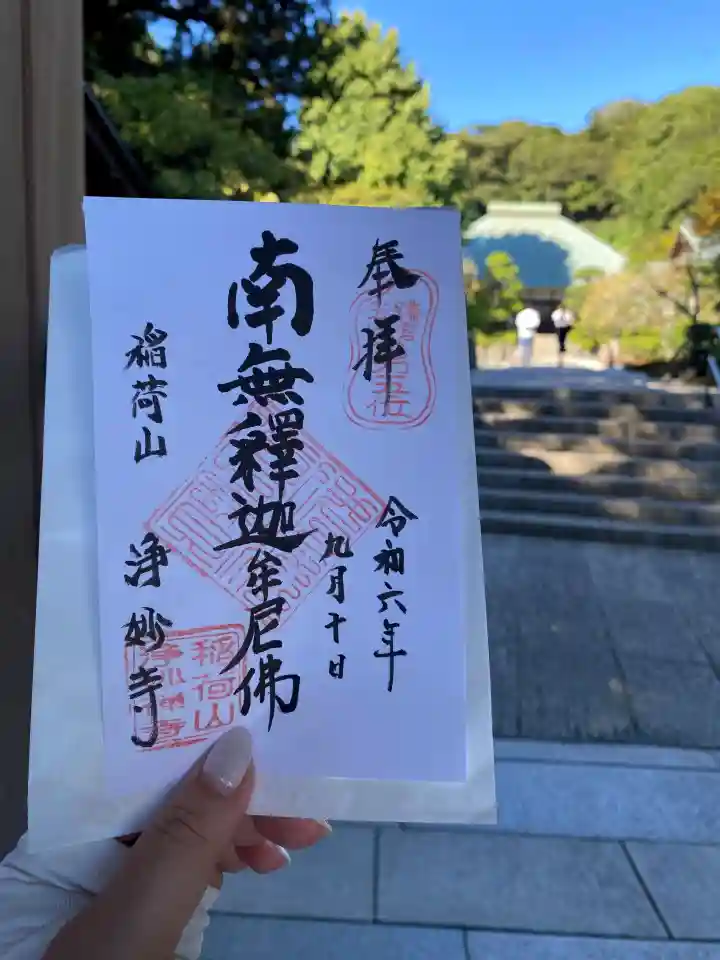 奉拝
令和六年
九月十日
南無釋迦牟尼佛
稲荷山 浄妙寺
稲荷山